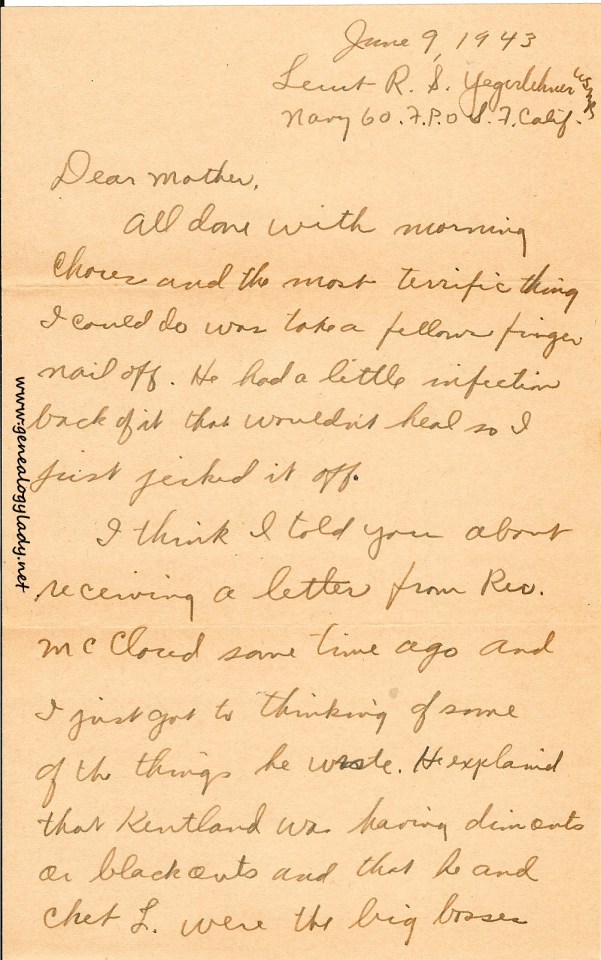 June 9, 1943
Lieut R. S. Yegerlehner USNR
Navy 60. F.P.O S.F. Calif.
Dear Mother,
All done with morning
chores and the most terrific thing
I could do was take a fellows finger
nail off. He had a little infection
back of it that wouldn't heal so I
just jerked it off.
I think I told you about
receiving a letter from Rev.
McCloed some time ago and
I just got to thinking of some
of the things he wrote. He explained
that Kentland was having dimouts
or blackouts and that he and
Chet L. were the big bosses
www.genealogylady.net